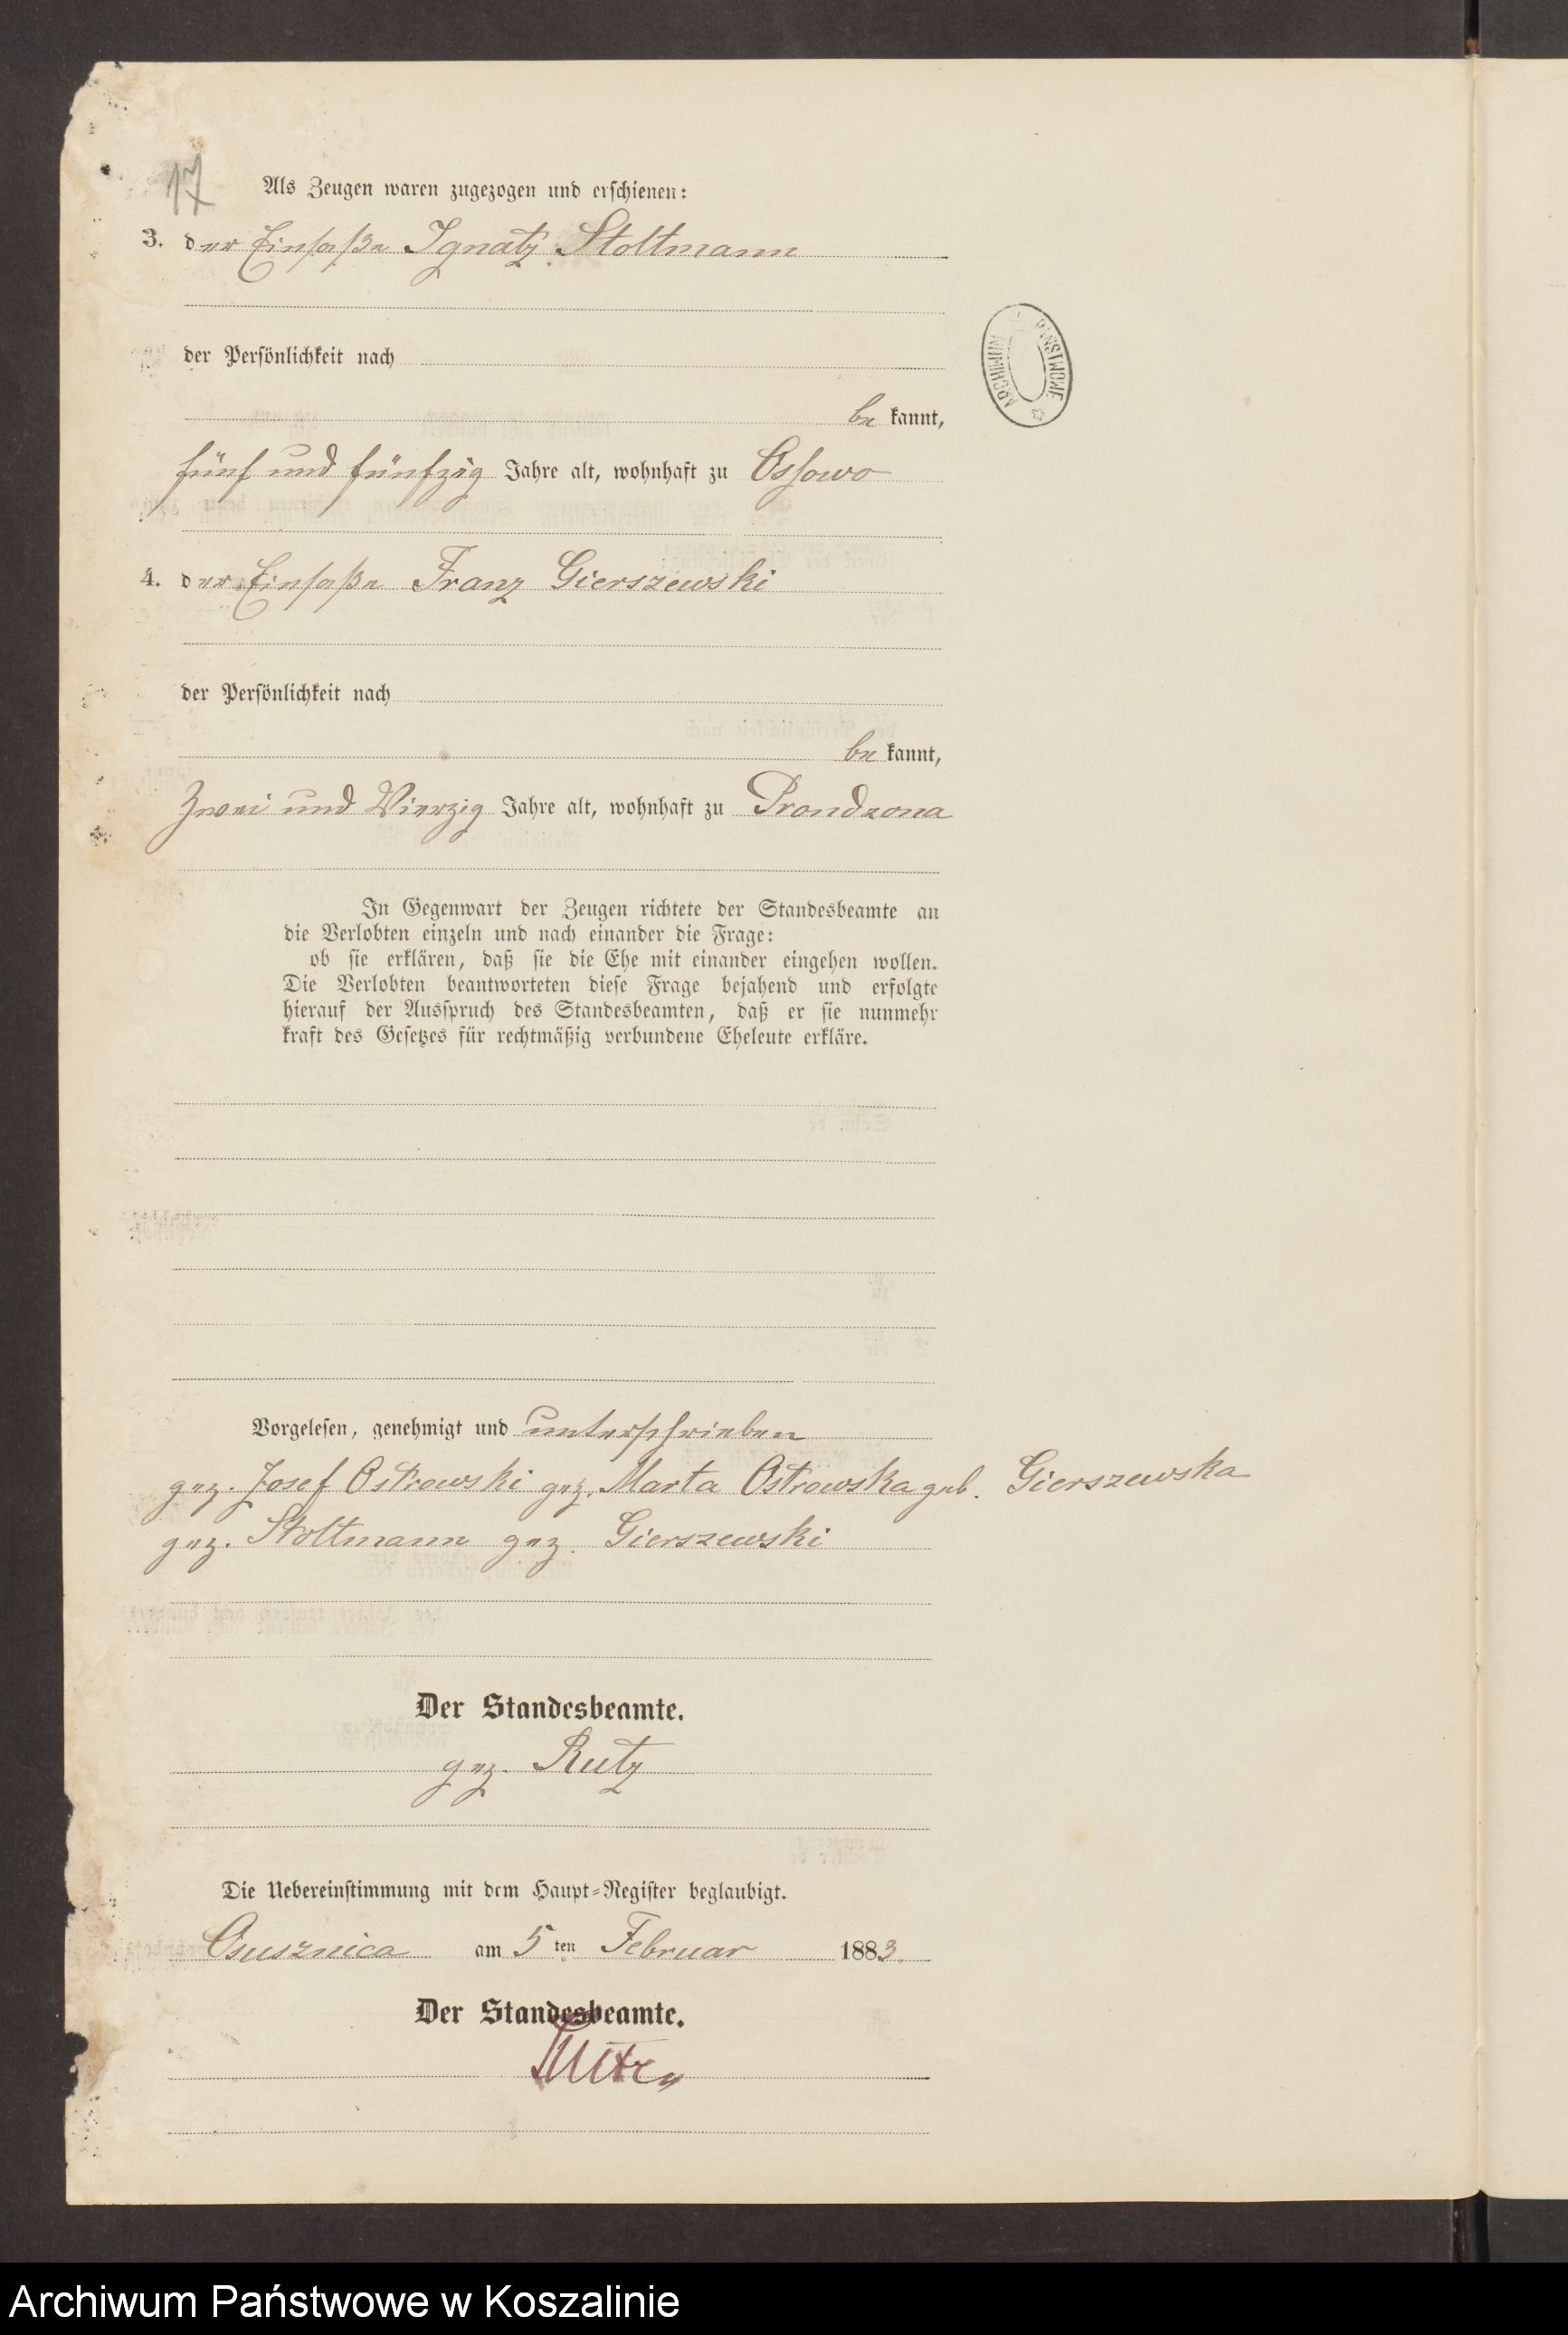 17
Als Zeugen waren zugezogen und erschienen:
3. der Einsaße Ignatz Stoltmann
der Persönlichkeit nach
be kannt,
fünf und fünfzig Jahre alt, wohnhaft zu Ossowo
4. der Einsaße Franz Gierszewski
der Persönlichkeit nach
be kannt,
Zwei und Vierzig Jahre alt, wohnhaft zu Prondzona
In Gegenwart der Zeugen richtete der Standesbeamte an
die Verlobten einzeln und nach einander die Frage:
ob sie erklären, daß sie die Ehe mit einander eingehen wollen.
Die Verlobten beantworteten diese Frage bejahend und erfolgte
hierauf der Ausspruch des Standesbeamten, daß er sie nunmehr
kraft des Gesetzes für rechtmäßig verbundene Eheleute erkläre.
Vorgelesen, genehmigt und unterschrieben
gez. Josef Ostrowski gez. Marta Ostrowska geb. Gierszewska
gez. Stoltmann gez. Gierszewski
Der Standesbeamte.
gez. Rutz
Die Uebereinstimmung mit dem Haupt-Register beglaubigt.
Osusznica am 5 ten Februar 1883.
Der Standesbeamte.
Rutz
ARCHIWUM PAŃSTWOWE
Archiwum Państwowe w Koszalinie